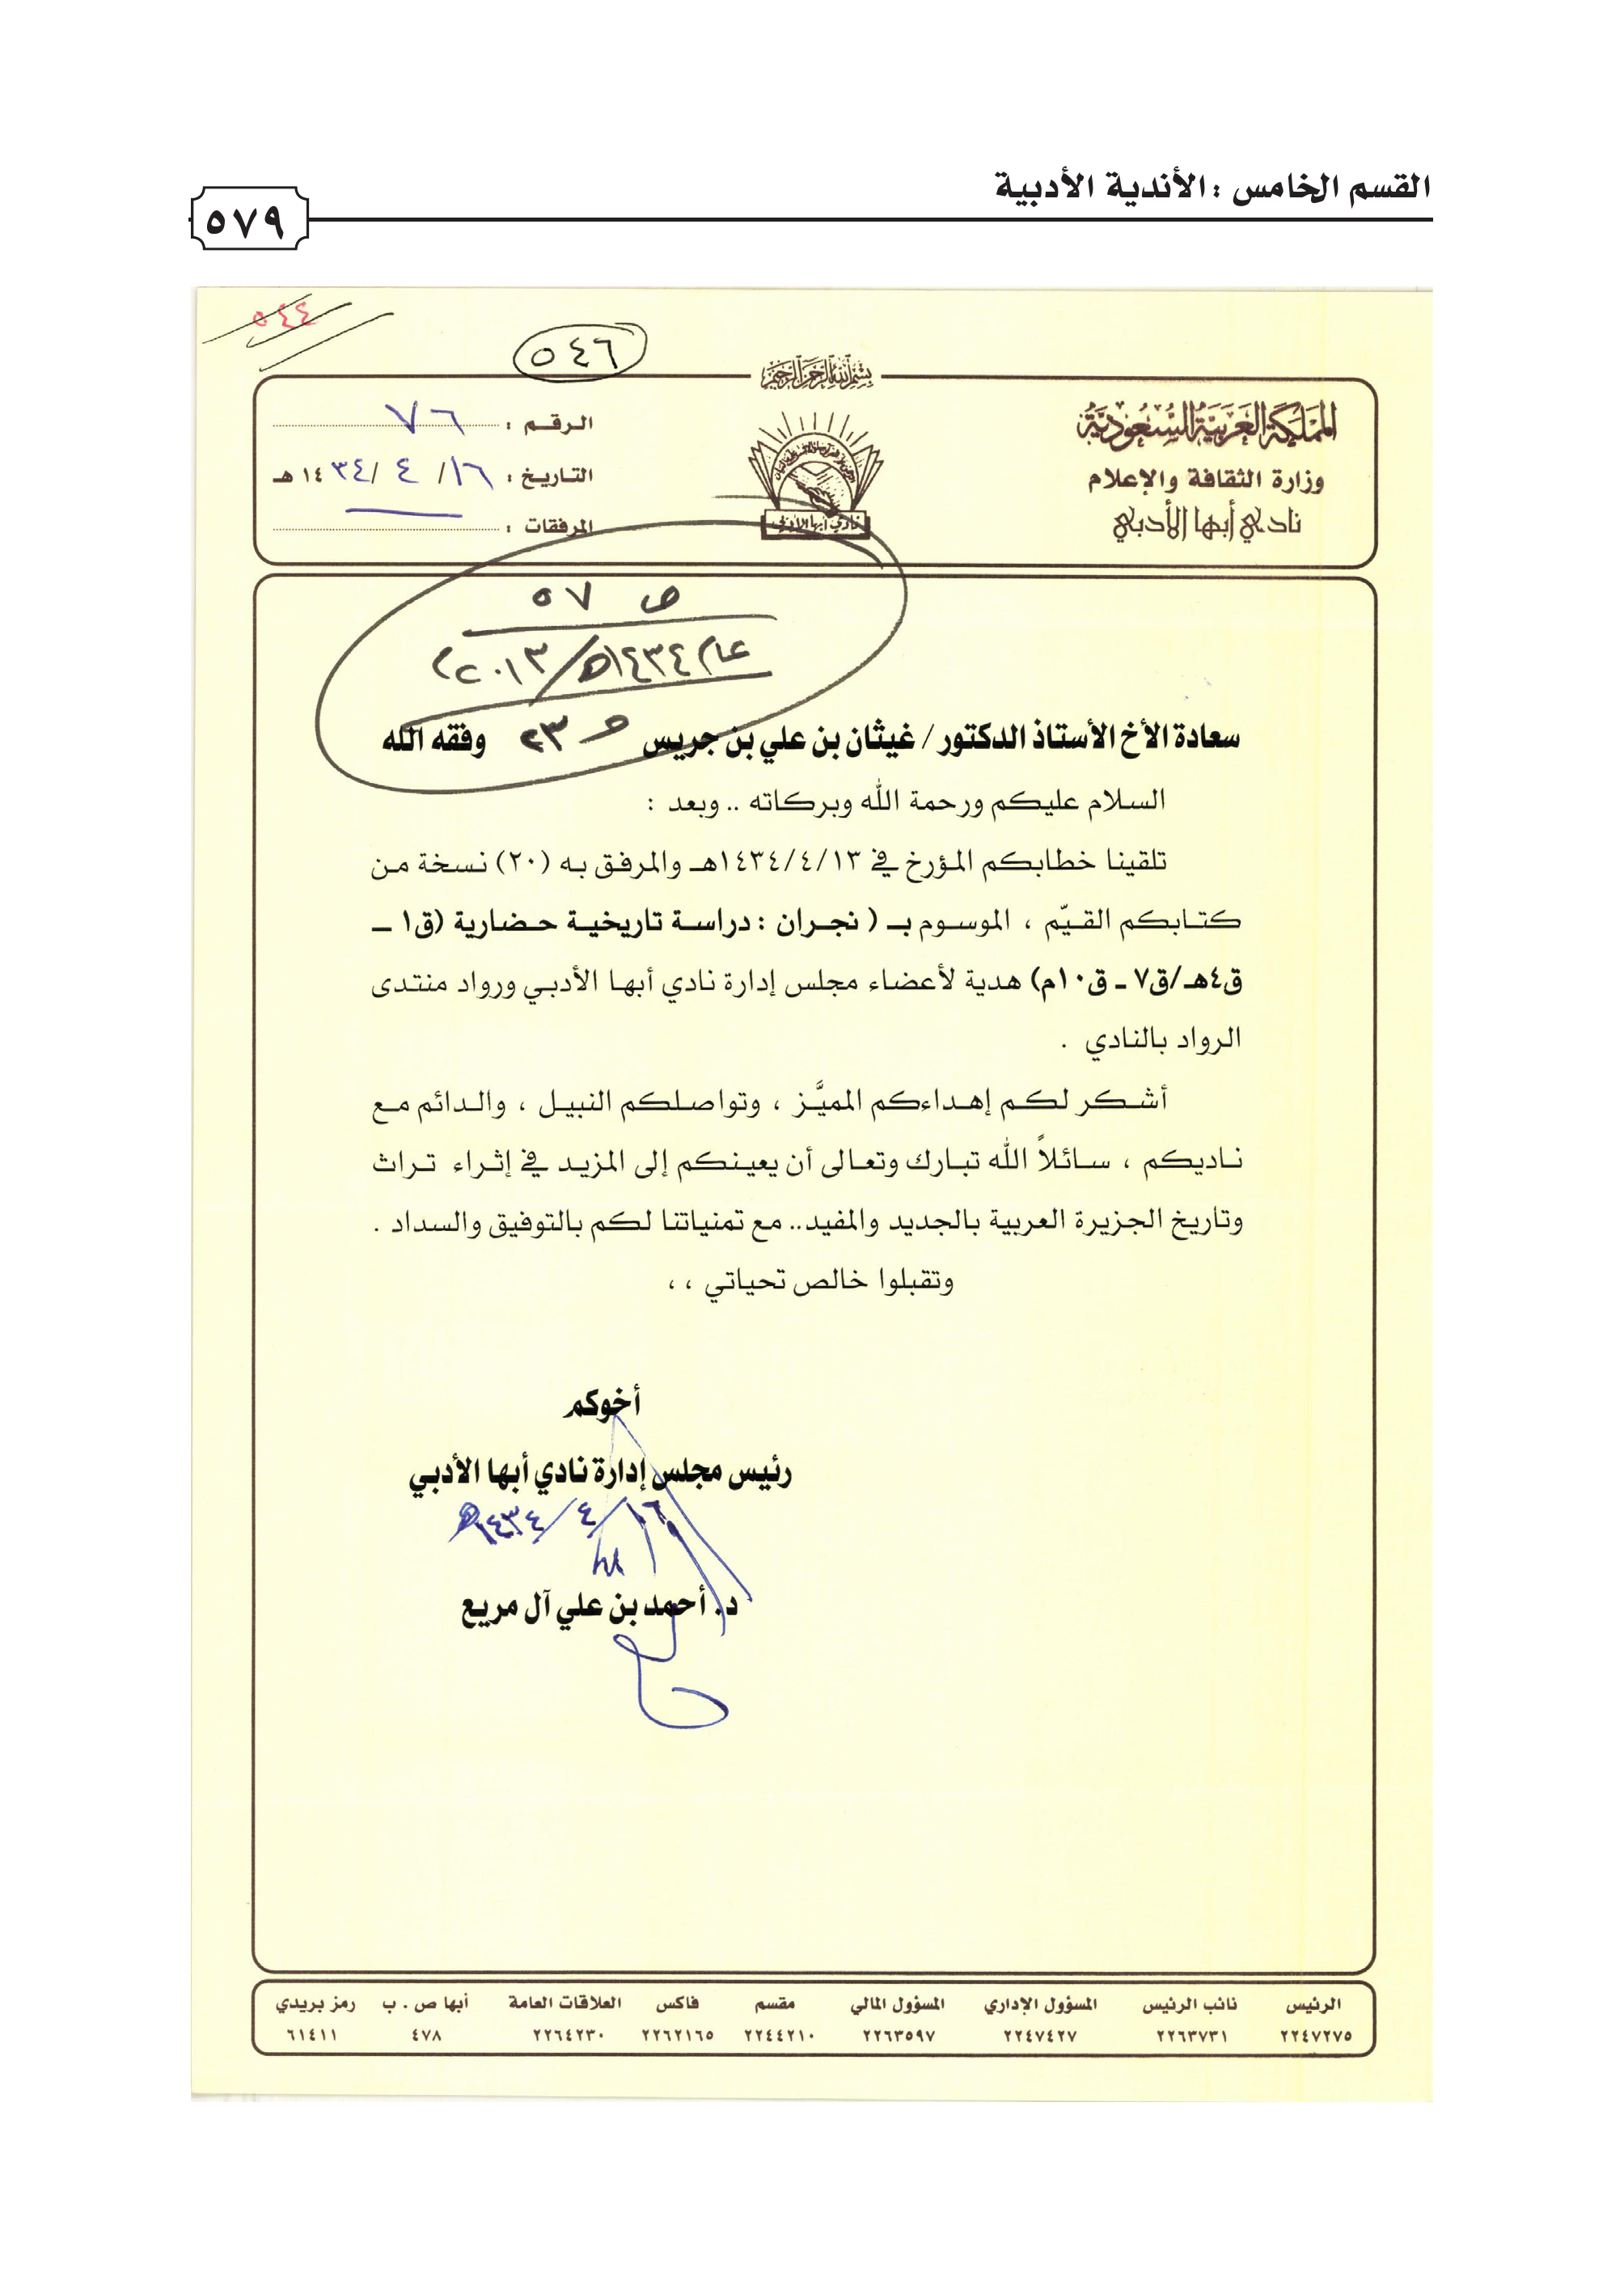 القسم الخامس : الأندية الأدبية
٥٧٩
٥٤٤
٥٤٦
بسم الله الرحمن الرحيم
المملكة العربية السعودية
وزارة الثقافة والإعلام
نادي أبها الأدبي
نادي أبها الأدبي
الرقم : ٧٦
التاريخ : ١٦/ ٤ /١٤٣٤هـ
المرفقات :
ص ٥٧
عام ١٤٣٤هـ/٢٠١٣م
ص ٢٣
سعادة الأخ الأستاذ الدكتور / غيثان بن علي بن جريس وفقه الله
السلام عليكم ورحمة الله وبركاته .. وبعد :
تلقينا خطابكم المؤرخ في ١٤٣٤/٤/١٣هـ والمرفق به (٢٠) نسخة من
كتابكم القيّم ، الموسوم بـ ( نجران : دراسة تاريخية حضارية (ق١ ـ
ق٤هـ/ق٧ ـ ق١٠م) هدية لأعضاء مجلس إدارة نادي أبها الأدبي ورواد منتدى
الرواد بالنادي .
أشكر لكم إهداءكم المميَّز ، وتواصلكم النبيل ، والدائم مع
ناديكم ، سائلاً الله تبارك وتعالى أن يعينكم إلى المزيد في إثراء تراث
وتاريخ الجزيرة العربية بالجديد والمفيد.. مع تمنياتنا لكم بالتوفيق والسداد .
وتقبلوا خالص تحياتي ، ،
أخوكم
رئيس مجلس إدارة نادي أبها الأدبي
١٦/ ٤ /١٤٣٤هـ
د. أحمد بن علي آل مريع
الرئيس نائب الرئيس المسؤول الإداري المسؤول المالي مقسم فاكس العلاقات العامة أبها ص . ب رمز بريدي
٢٢٤٧٢٧٥ ٢٢٦٣٧٣١ ٢٢٤٧٤٢٧ ٢٢٦٣٥٩٧ ٢٢٤٤٢١٠ ٢٢٦٢١٦٥ ٢٢٦٤٢٣٠ ٤٧٨ ٦١٤١١